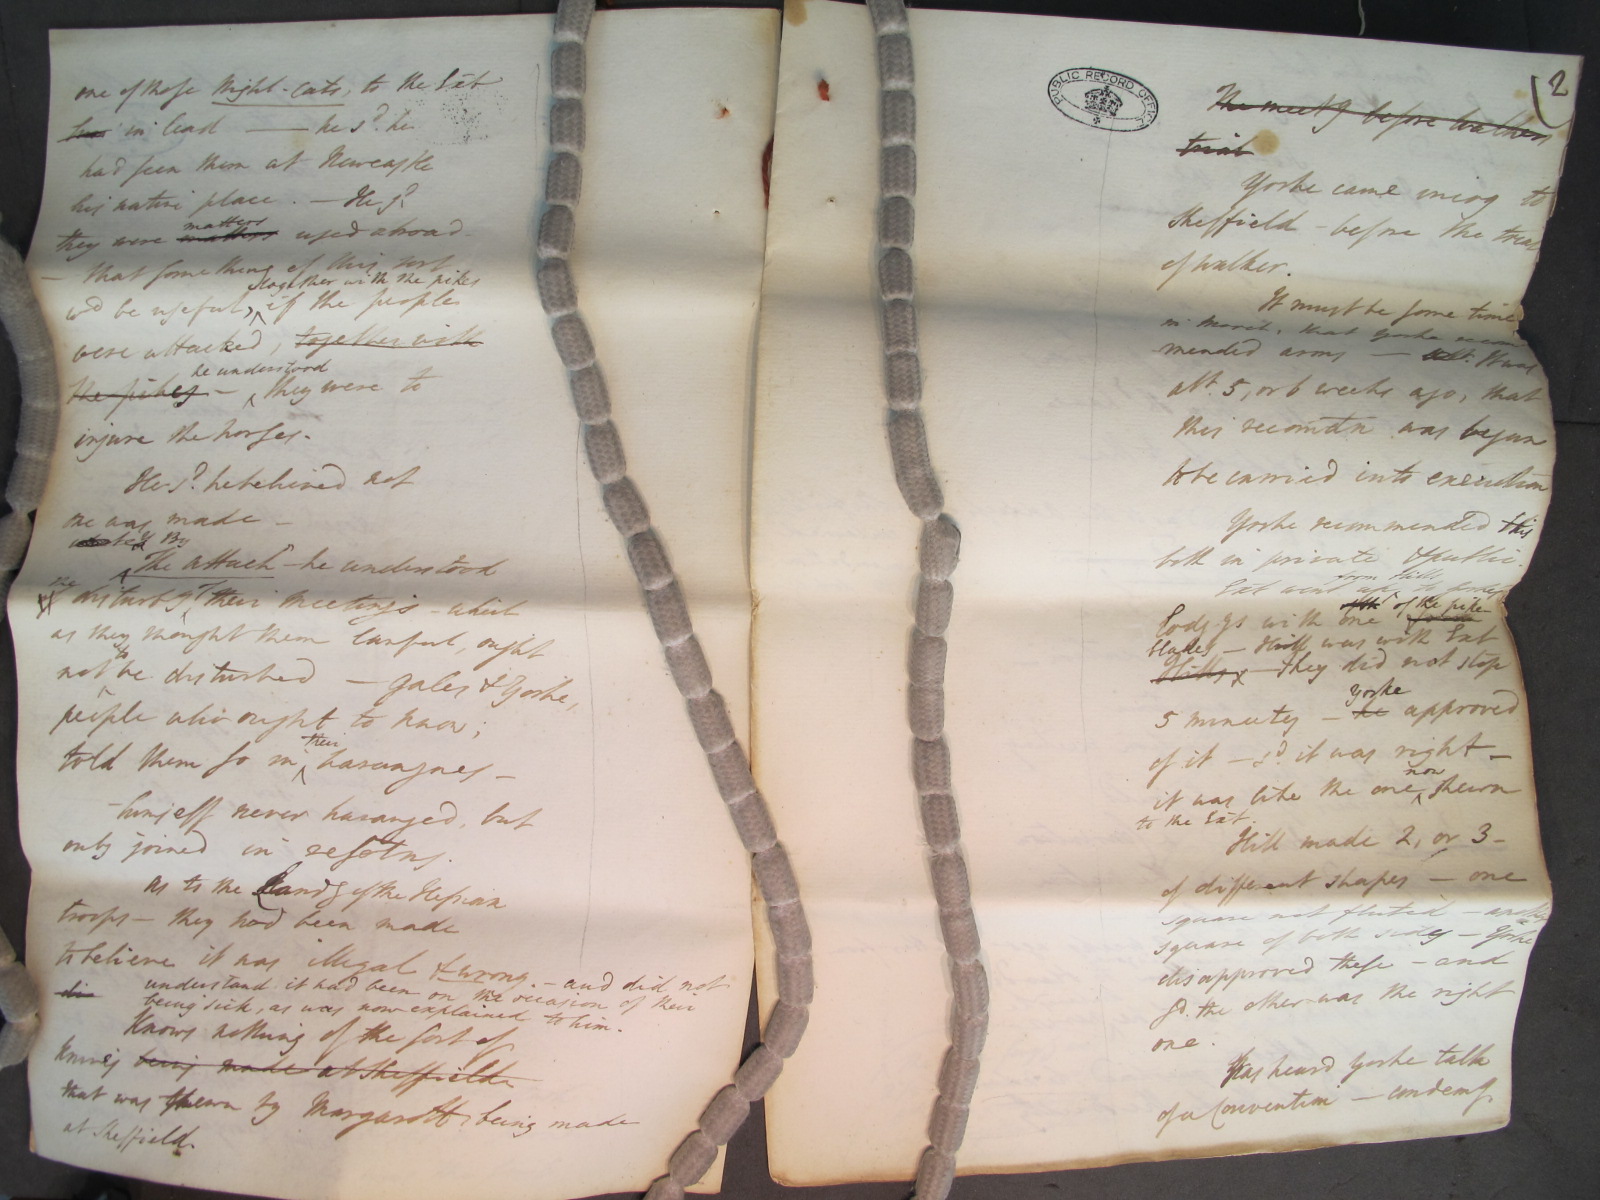 one of those Night-Cats, to the Ext
in lead — he sd. he
had seen them at Newcastle
his native place. — He sd.
matters
they were used abroad
— that something of this sort
together with the pikes
wd be useful, if the people
were attacked, together with
the pikes — he understood they were to
injure the horses.
He sd. he believed not
one was made —
By
The attack — he understood
the disturbg their meetings — which
as they thought them lawful, ought
not to be disturbed — Gales & Yorke,
people who ought to know;
told them so in their harangues —
— himself never harangued, but
only joined in resoltns.
As to the Landg of the Hessian
troops — they had been made
to believe it was illegal & wrong. — and did not
understand it had been on the occasion of their
being sick, as was now explained to him.
Knows nothing of the sort of
knives being made at Sheffield
that was shewn by Margarott, being made
at Sheffield.
PUBLIC RECORD OFFICE
2
The meetg before Walkers
trial
Yorke came incog to
Sheffield — before the trial
of Walker.
It must be some time
in March, that Yorke recom
mended arms — It was
abt. 5, or 6 weeks ago, that
this recomdn was begun
to be carried into execution
Yorke recommended this
both in private & public.
Ext went
from Hill
Lodgs with one of the pike
blades, — Hill was with Ext
Hills — they did not stop
5 minutes — he Yorke approved
of it — sd it was right —
it was like the one now shewn
to the Ext.
Hill made 2, or 3 —
of different shapes — one
square not fluted — another
square of both sides — Yorke
disapproved these — and
sd. the other was the right
one.
Has heard Yorke talk
of a Convention — condemg